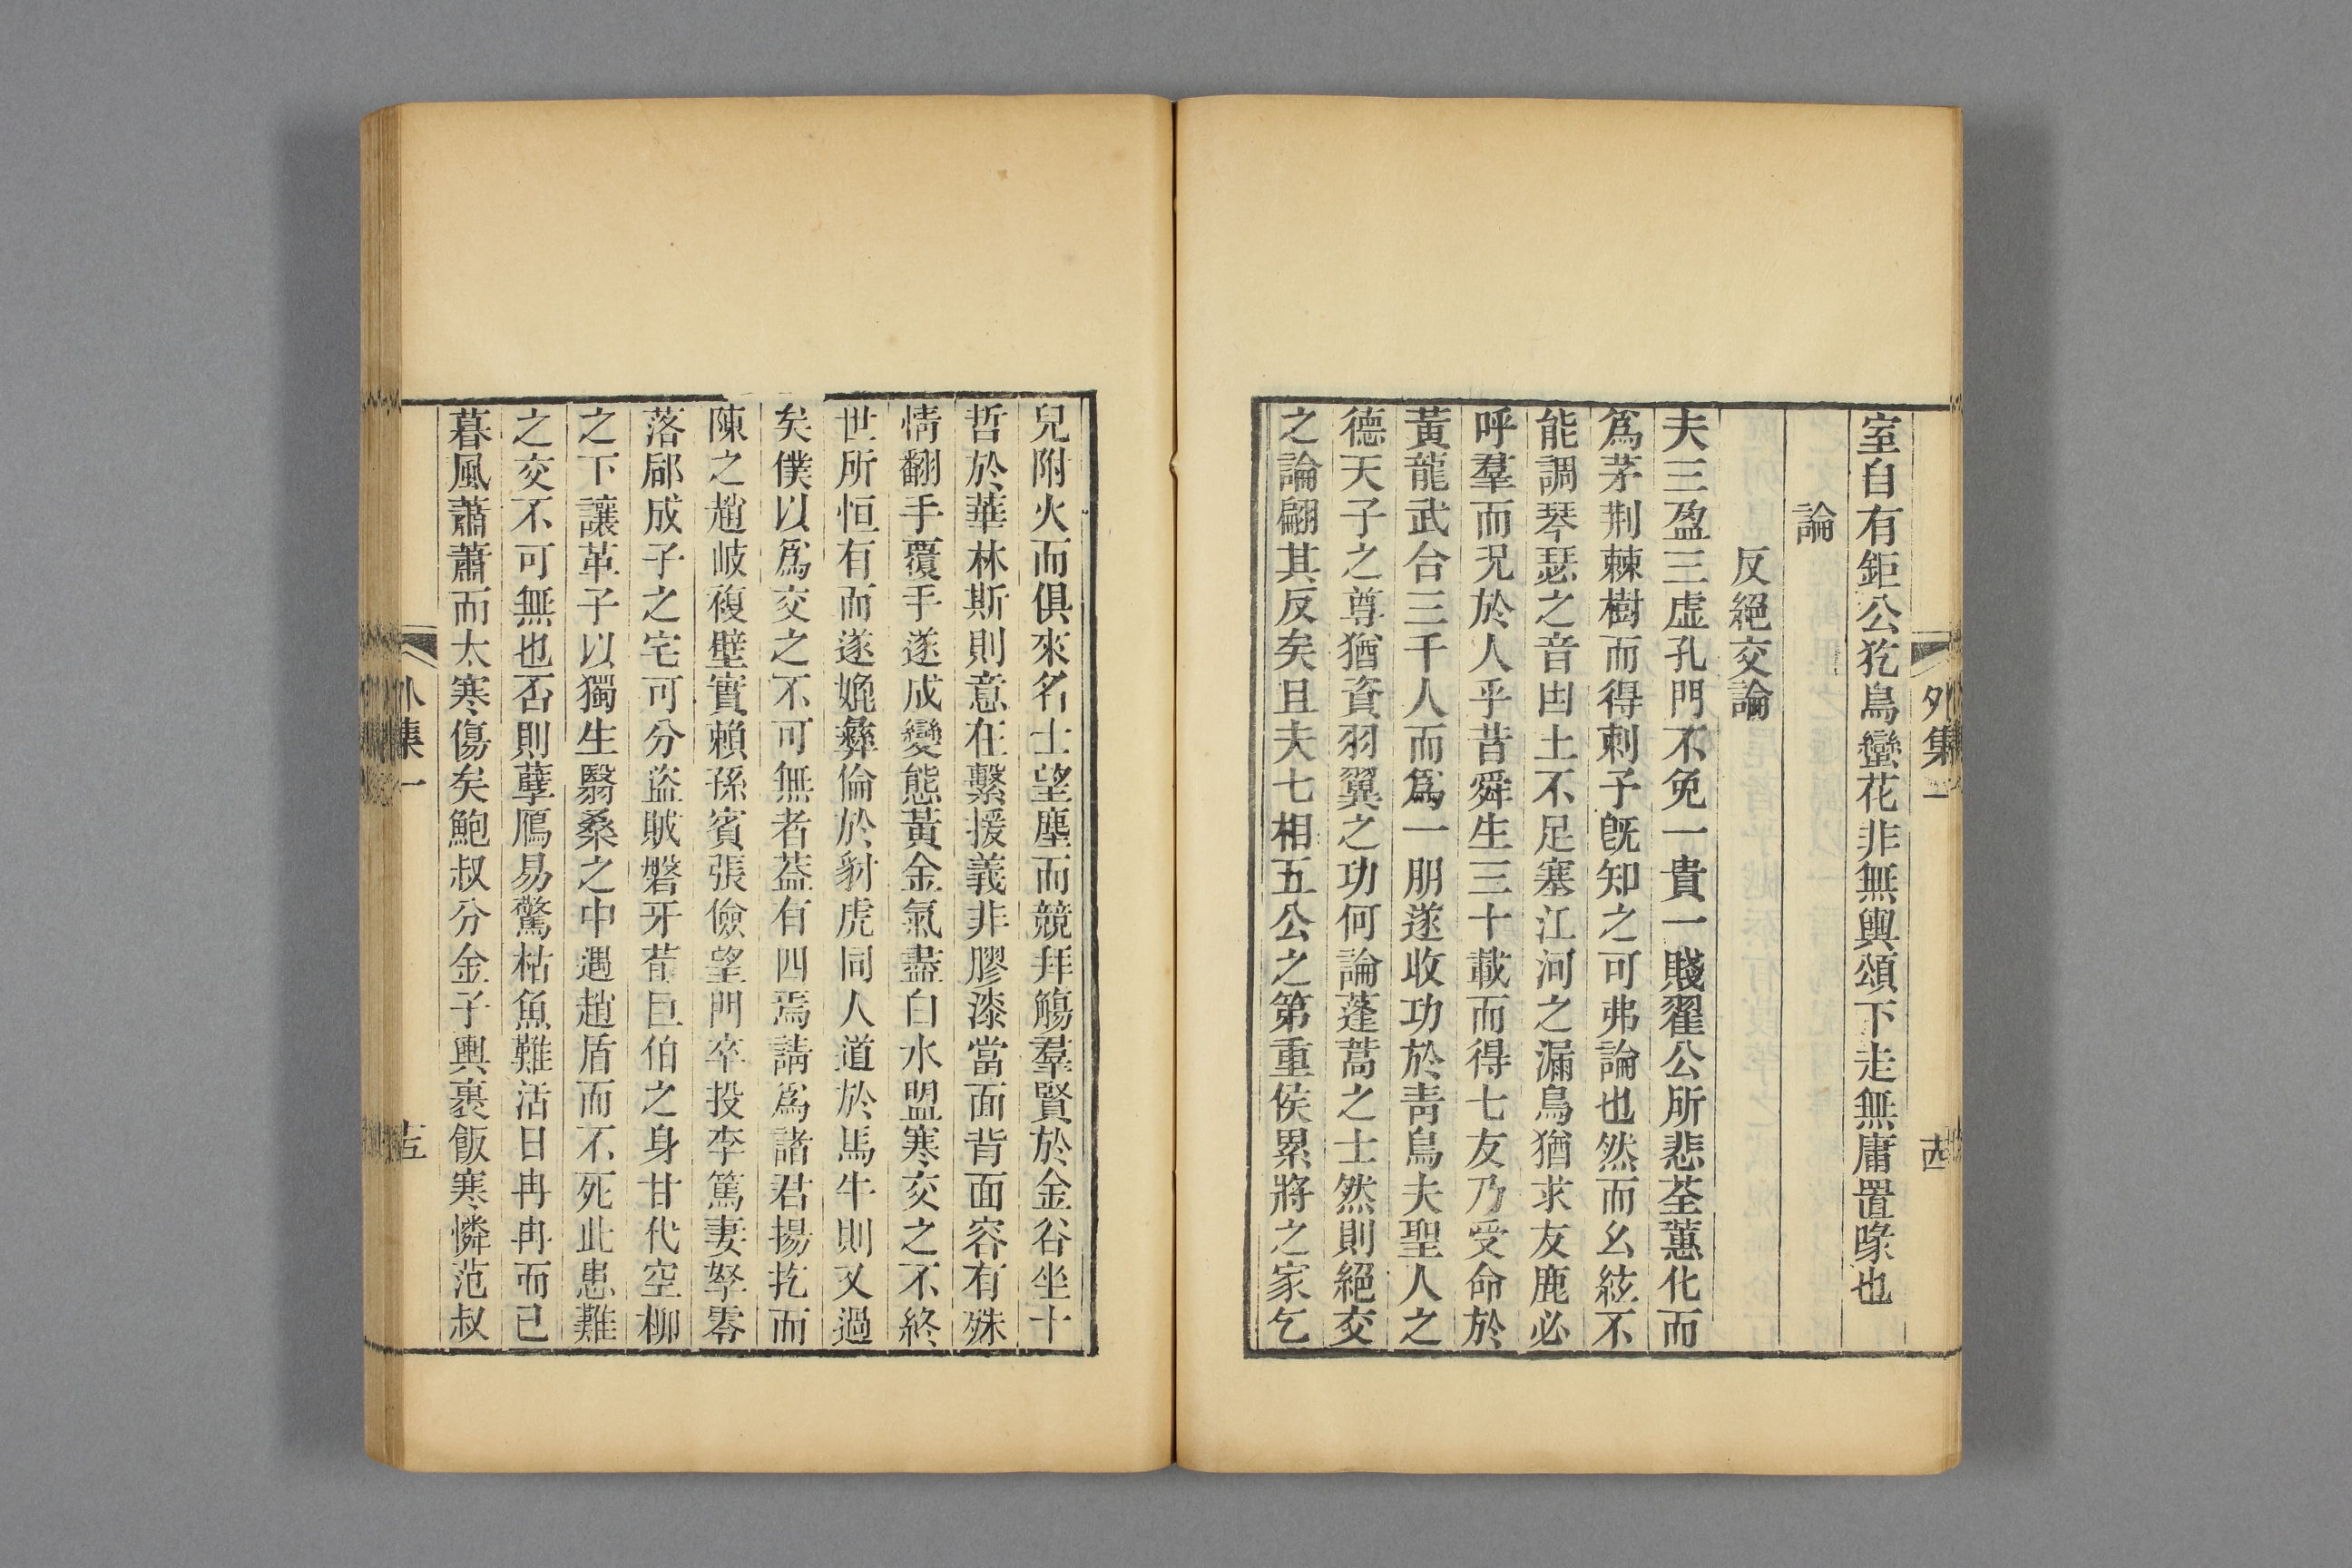 外集一
十四
室自有鉅公犵鳥蠻花非無輿頌下走無庸置喙也
論
反絕交論
夫三盈三虛孔門不免一貴一賤翟公所悲荃蕙化而
爲茅荆棘樹而得刺予旣知之可弗論也然而幺絃不
能調琴瑟之音凷土不足塞江河之漏鳥猶求友鹿必
呼羣而况於人乎昔舜生三十載而得七友乃受命於
黃龍武合三千人而爲一朋遂收功於靑烏夫聖人之
德天子之尊猶資羽翼之功何論蓬蒿之士然則絕交
之論翩其反矣且夫七相五公之第重侯累將之家乞
兒附火而俱來名士望塵而競拜觴羣賢於金谷坐十
哲於華林斯則意在繫援義非膠漆當面背面容有殊
情翻手覆手遂成變態黃金氣盡白水盟寒交之不終
世所恒有而遂媿彝倫於豺虎同人道於馬牛則又過
矣僕以爲交之不可無者葢有四焉請爲諸君揚扢而
陳之趙岐複壁實賴孫賓張儉望門卒投李篤妻孥零
落郈成子之宅可分盜賊磐牙荀巨伯之身甘代空柳
之下讓革子以獨生翳桑之中遇趙盾而不死此患難
之交不可無也否則孽鴈易驚枯魚難活日冉冉而已
暮風蕭蕭而太寒傷矣鮑叔分金子輿裹飯寒憐范叔
外集一
十五